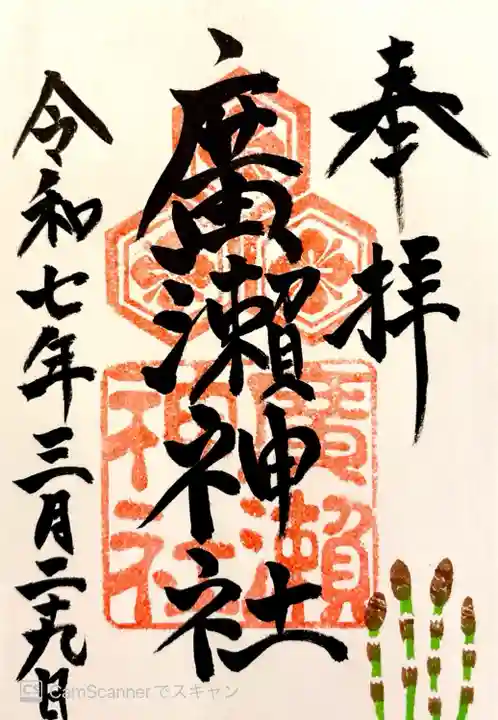 奉拝
廣瀬神社
令和七年三月二十九日
廣瀬神社
CS CamScannerでスキャン